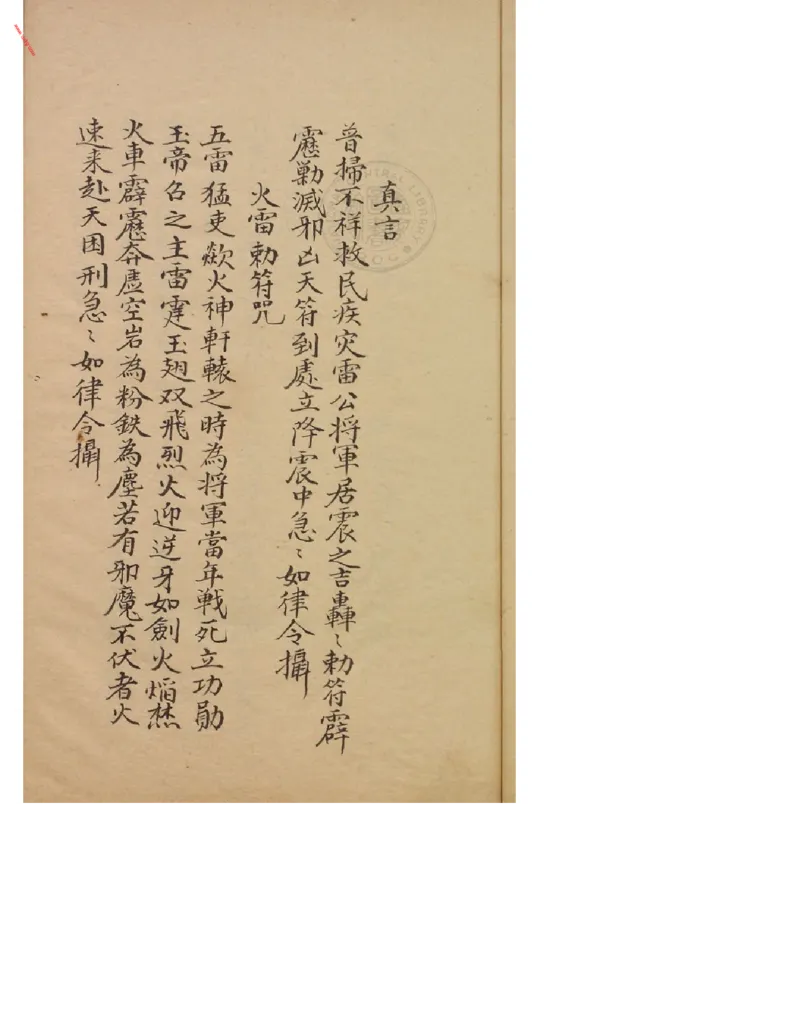 真言
普掃不祥救民疾灾雷公将軍居震之吉轟〻勅符霹
靂勦滅邪凶天符到處立降震中急〻如律令攝
火雷勅符咒
五雷猛吏歘火神軒轅之時為将軍當年戦死立功勛
玉帝召之主雷霆玉翅双飛烈火迎逆牙如劍火焰焚
火車霹靂奔虚空岩為粉鉄為塵若有邪魔不伏者火
速来赴天困刑急〻如律令攝